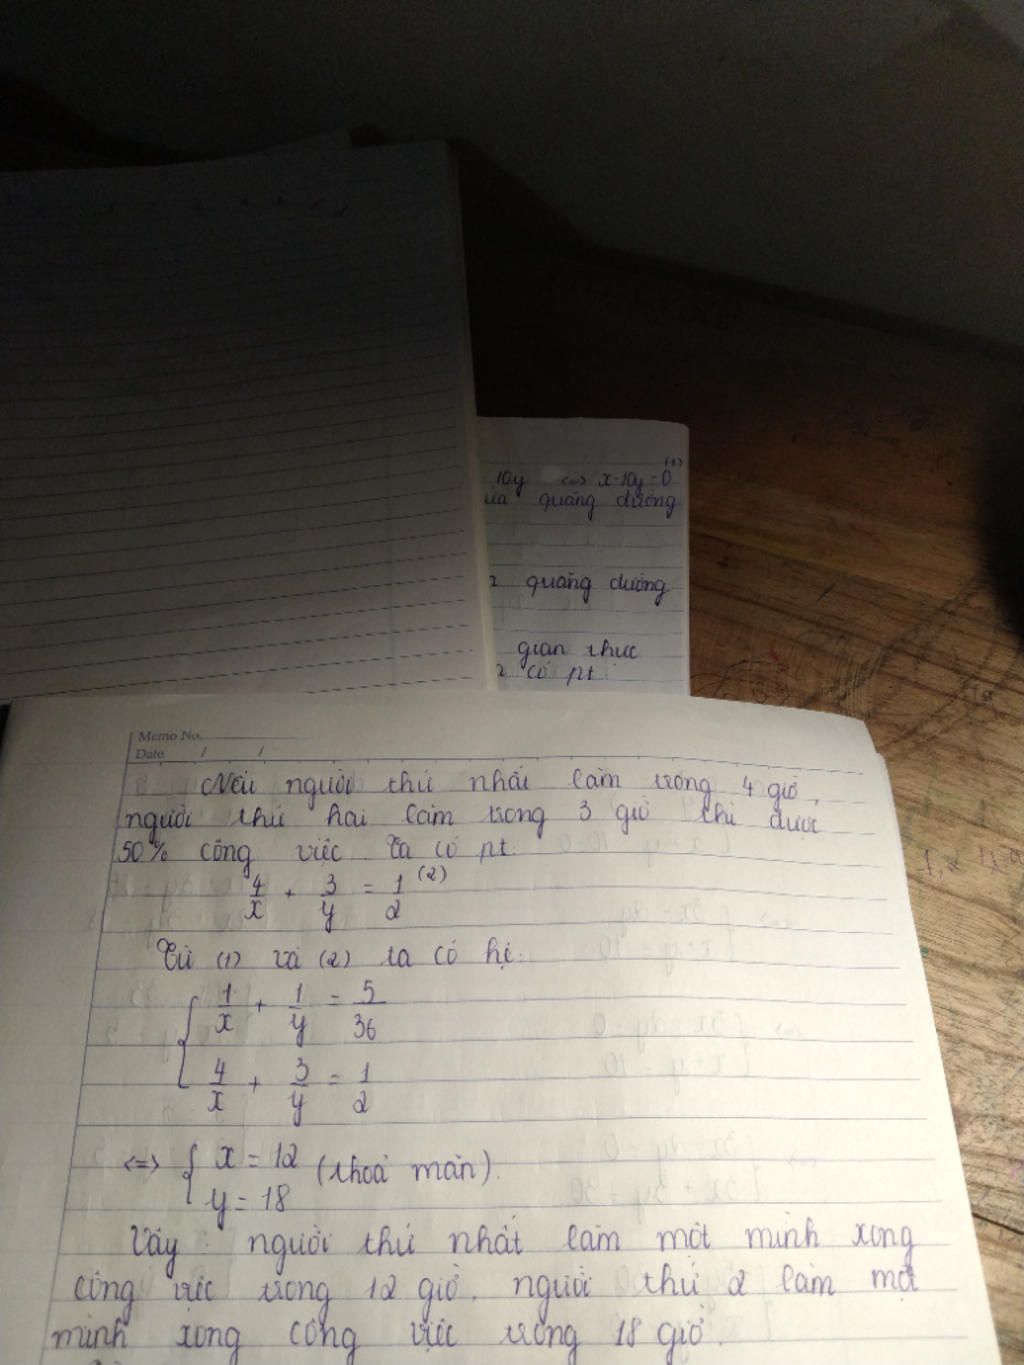 (1)
10y <=> x-10y=0
ưa quãng đường
quãng đường
gian thực
có pt:
Memo No.
Date / /
Nếu người thứ nhất làm trong 4 giờ,
người thứ hai làm trong 3 giờ thì được
50% công việc. Ta có pt:
4/x + 3/y = 1/2 (2)
Từ (1) và (2) ta có hệ:
1/x + 1/y = 5/36
4/x + 3/y = 1/2
<=> { x = 12 (thoả mãn).
y = 18
Vậy người thứ nhất làm một mình xong
công việc trong 12 giờ, người thứ 2 làm một
mình xong công việc trong 18 giờ.